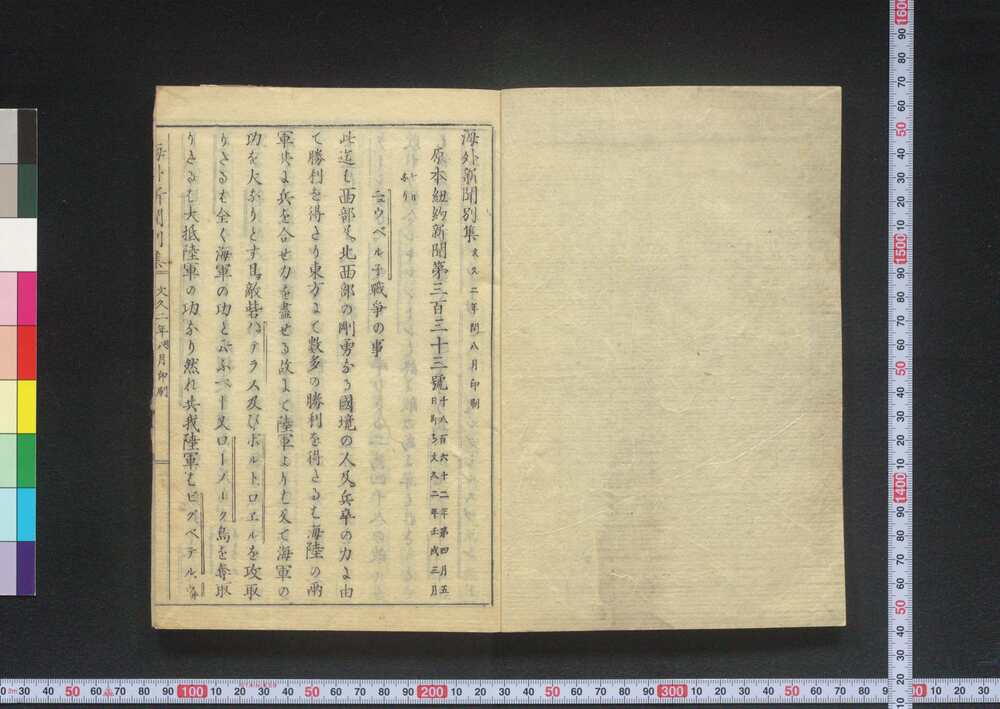 海外新聞別集 文久二年閏八月印刷
原本紐約新聞第三百三十三號 千八百六十二年第四月五
日即ち文久二年壬戌三月
七日なり
ニウベル子戰爭の事
此迄も西部及北西部の剛勇なる國境の人及兵卒の力に由
て勝利を得たり東方にて數多の勝利を得たるも海陸の兩
軍共に兵を合せ力を盡せる故にて陸軍よりも反て海軍の
功を大なりとす且敵砦ハテラス及びポルトロエルを攻取
りたるも全く海軍の功と云ふべし又ローノーク島を奪取
りたるも大抵陸軍の功なり然れ共我陸軍もビグベテル
海外新聞別集 文久二年閏八月印刷